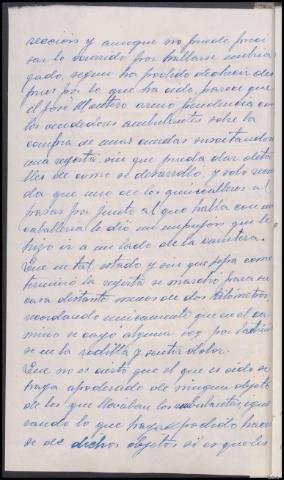 reccion y aunque no puede preci
sar lo ocurrido por hallarse embria
gado, segun ha podido deducir des
pues por lo que ha oido, parece que
el José Montoro armó pendencia con
los vendedores ambulantes sobre la
compra de unas mandas suscitandose
una reyerta, sin que pueda dar deta
lles de como se desarrolló, y solo recuer
da que uno de los quincalleros al
pasar por junto al que habla con una
caballeria le dió un empujón que le
hizo ir a un lado de la carretera.
Que en tal estado y sin que sepa como
terminó la reyerta se marchó para su
casa distante menos de dos kilómetros,
recordando unicamente que en el ca
mino se cayó alguna vez por
se en la rodilla y sentir dolor.
Que no es cierto que el que es oido se
haya apoderado de ningun objeto
de los que llevaban los ambulantes, igno
rando lo que haya podido hacer
se de dichos objetos si es que les